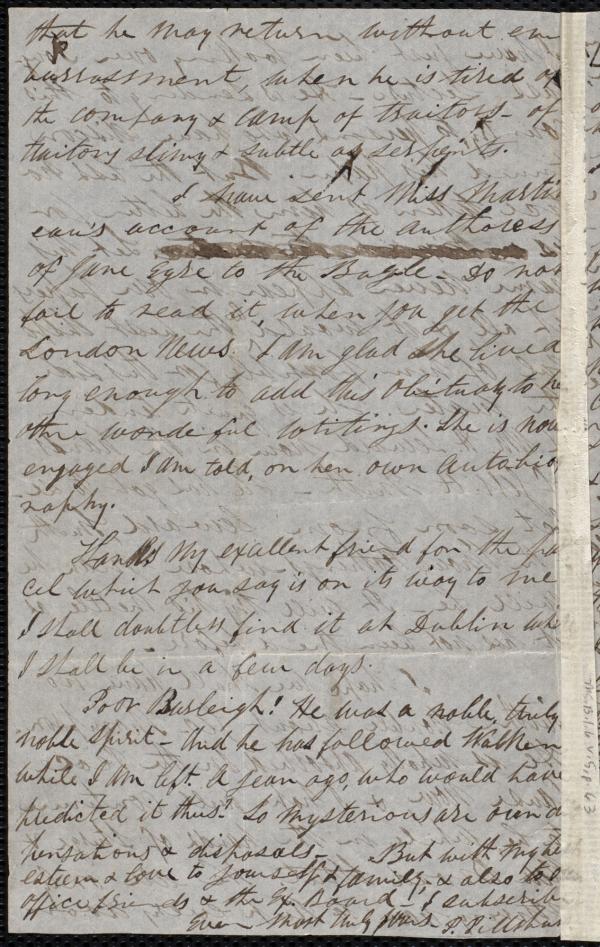 that he may return without em
barrassment, when he is tired of
the company & camp of traitors - of
traitors slimy & subtle as serpents.
I have sent Miss Martin
eau's account of the authoress
of Jane Eyre to the Bugle - Do not
fail to read it, when you get the
London News. I am glad she lived
long enough to add this Obituary to her
other wonderful writings. She is now
engaged I am told, on her own Autobiog
raphy.
Thanks my excellent friend for the par
cel which you say is on its way to me
I shall doubtless find it at Dublin where
I shall be in a few days.
Poor Burleigh! He was a noble, truly
noble spirit - And he has followed Walker
while I am left. A year ago, who would have
predicted it thus? So mysterious are our di
pensations & disposals - But with highest
esteem & love to yourself & family, & also to
office friends & the Ex. Board - I subscribe
Ever most truly yours P. Pillsbury